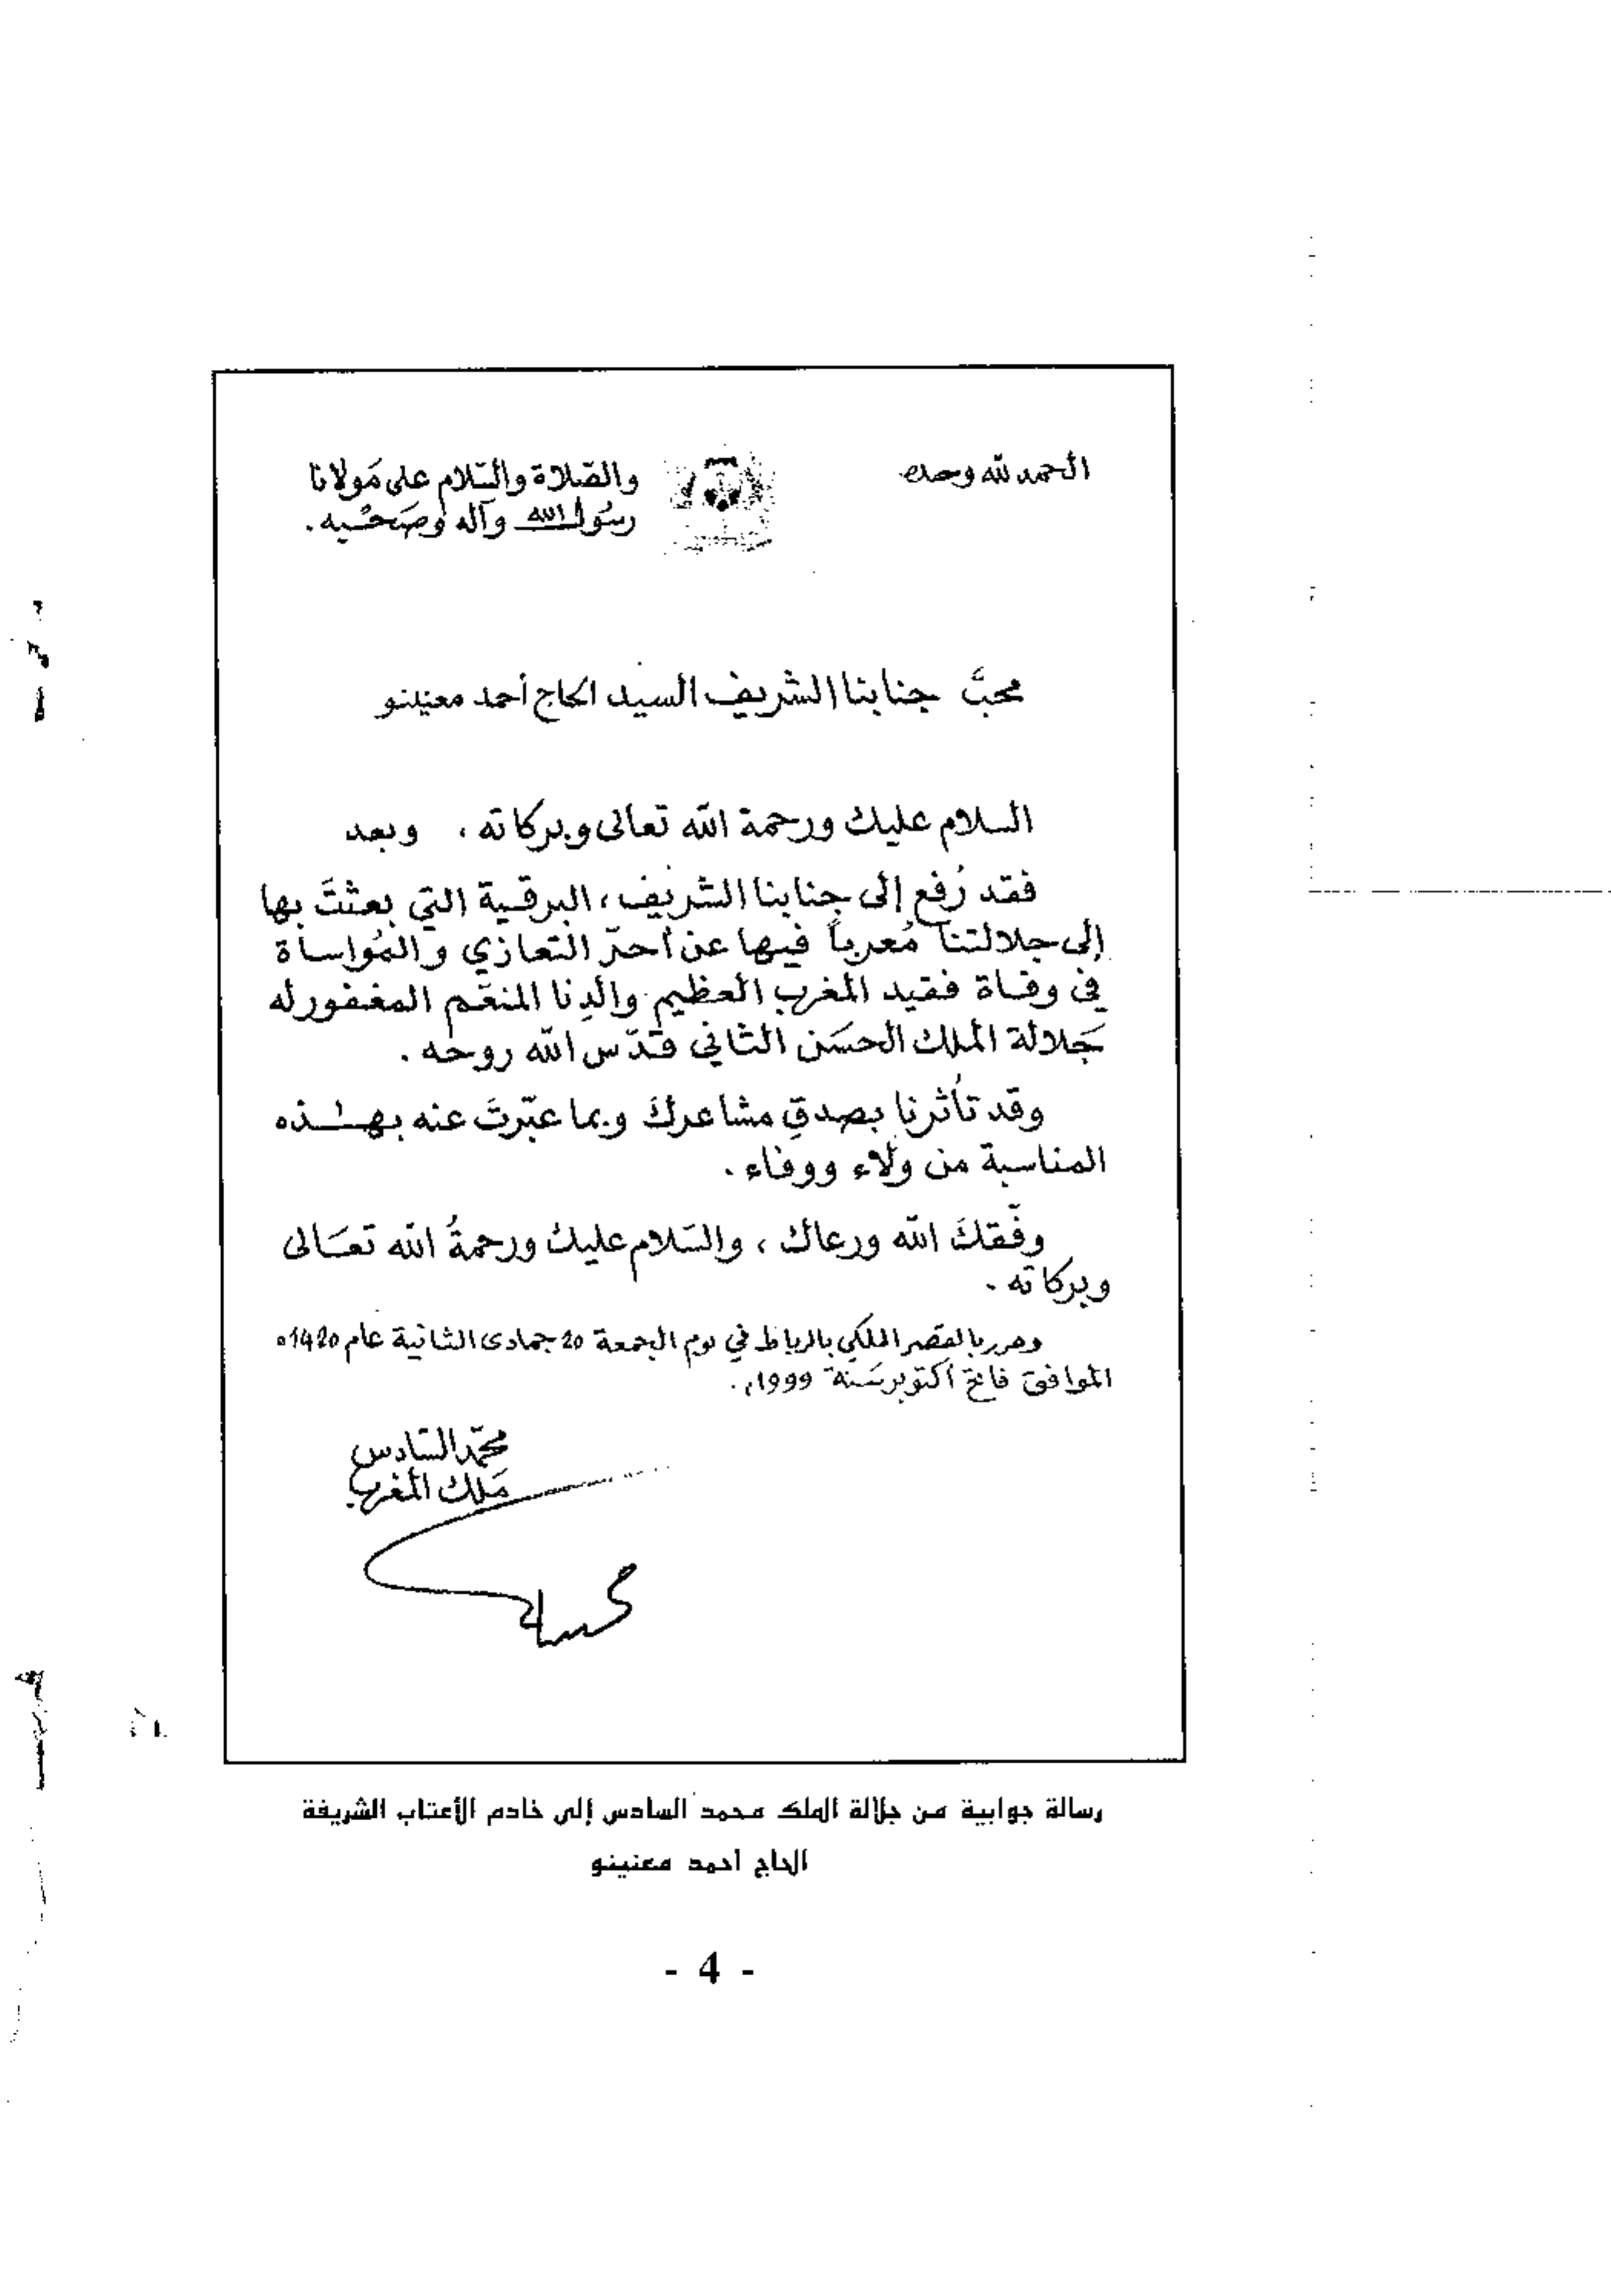 الحمد لله وحده
والصّلاة والسّلام على مَولانا
رسُول الله وآله وصَحْبه.
محبَّ جنابنا الشريف السيد الحاج أحمد معنينو
السلام عليك ورحمة الله تعالى وبركاته، وبعد
فقد رُفع إلى جنابنا الشريف، البرقية التي بعثتَ بها
إلى جلالتنا مُعرباً فيها عن أحرّ التعازي والمُواساة
في وفاة فقيد المغرب العظيم والدِنا المنعّم المغفور له
جَلالة الملك الحسَن الثاني قدّس الله روحه.
وقد تأثرنا بصدقِ مشاعركَ وبما عبّرتَ عنه بهـٰذه
المناسبة من ولاء ووفاء.
وفّقكَ الله ورعاك، والسّلام عليك ورحمةُ الله تعَالى
وبركاته.
وحرر بالقصر الملكي بالرباط في يوم الجمعة 20 جمادى الثانية عام 1420ه
الموافق فاتح أكتوبر سَنة 1999م.
محمّد السّادس
مَلك المغرب
رسالة جوابية من جلالة الملك محمد السادس إلى خادم الأعتاب الشريفة
الحاج أحمد معنينو
- 4 -